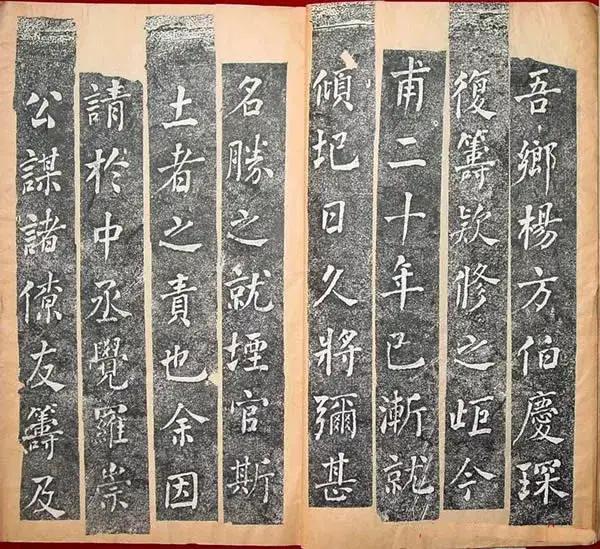 吾鄉楊方伯慶琛
復籌欵修之岠今
甫二十年已漸就
傾圯日久將彌甚
名勝之就堙官斯
土者之責也余因
請於中丞覺羅崇
公謀諸僚友籌及